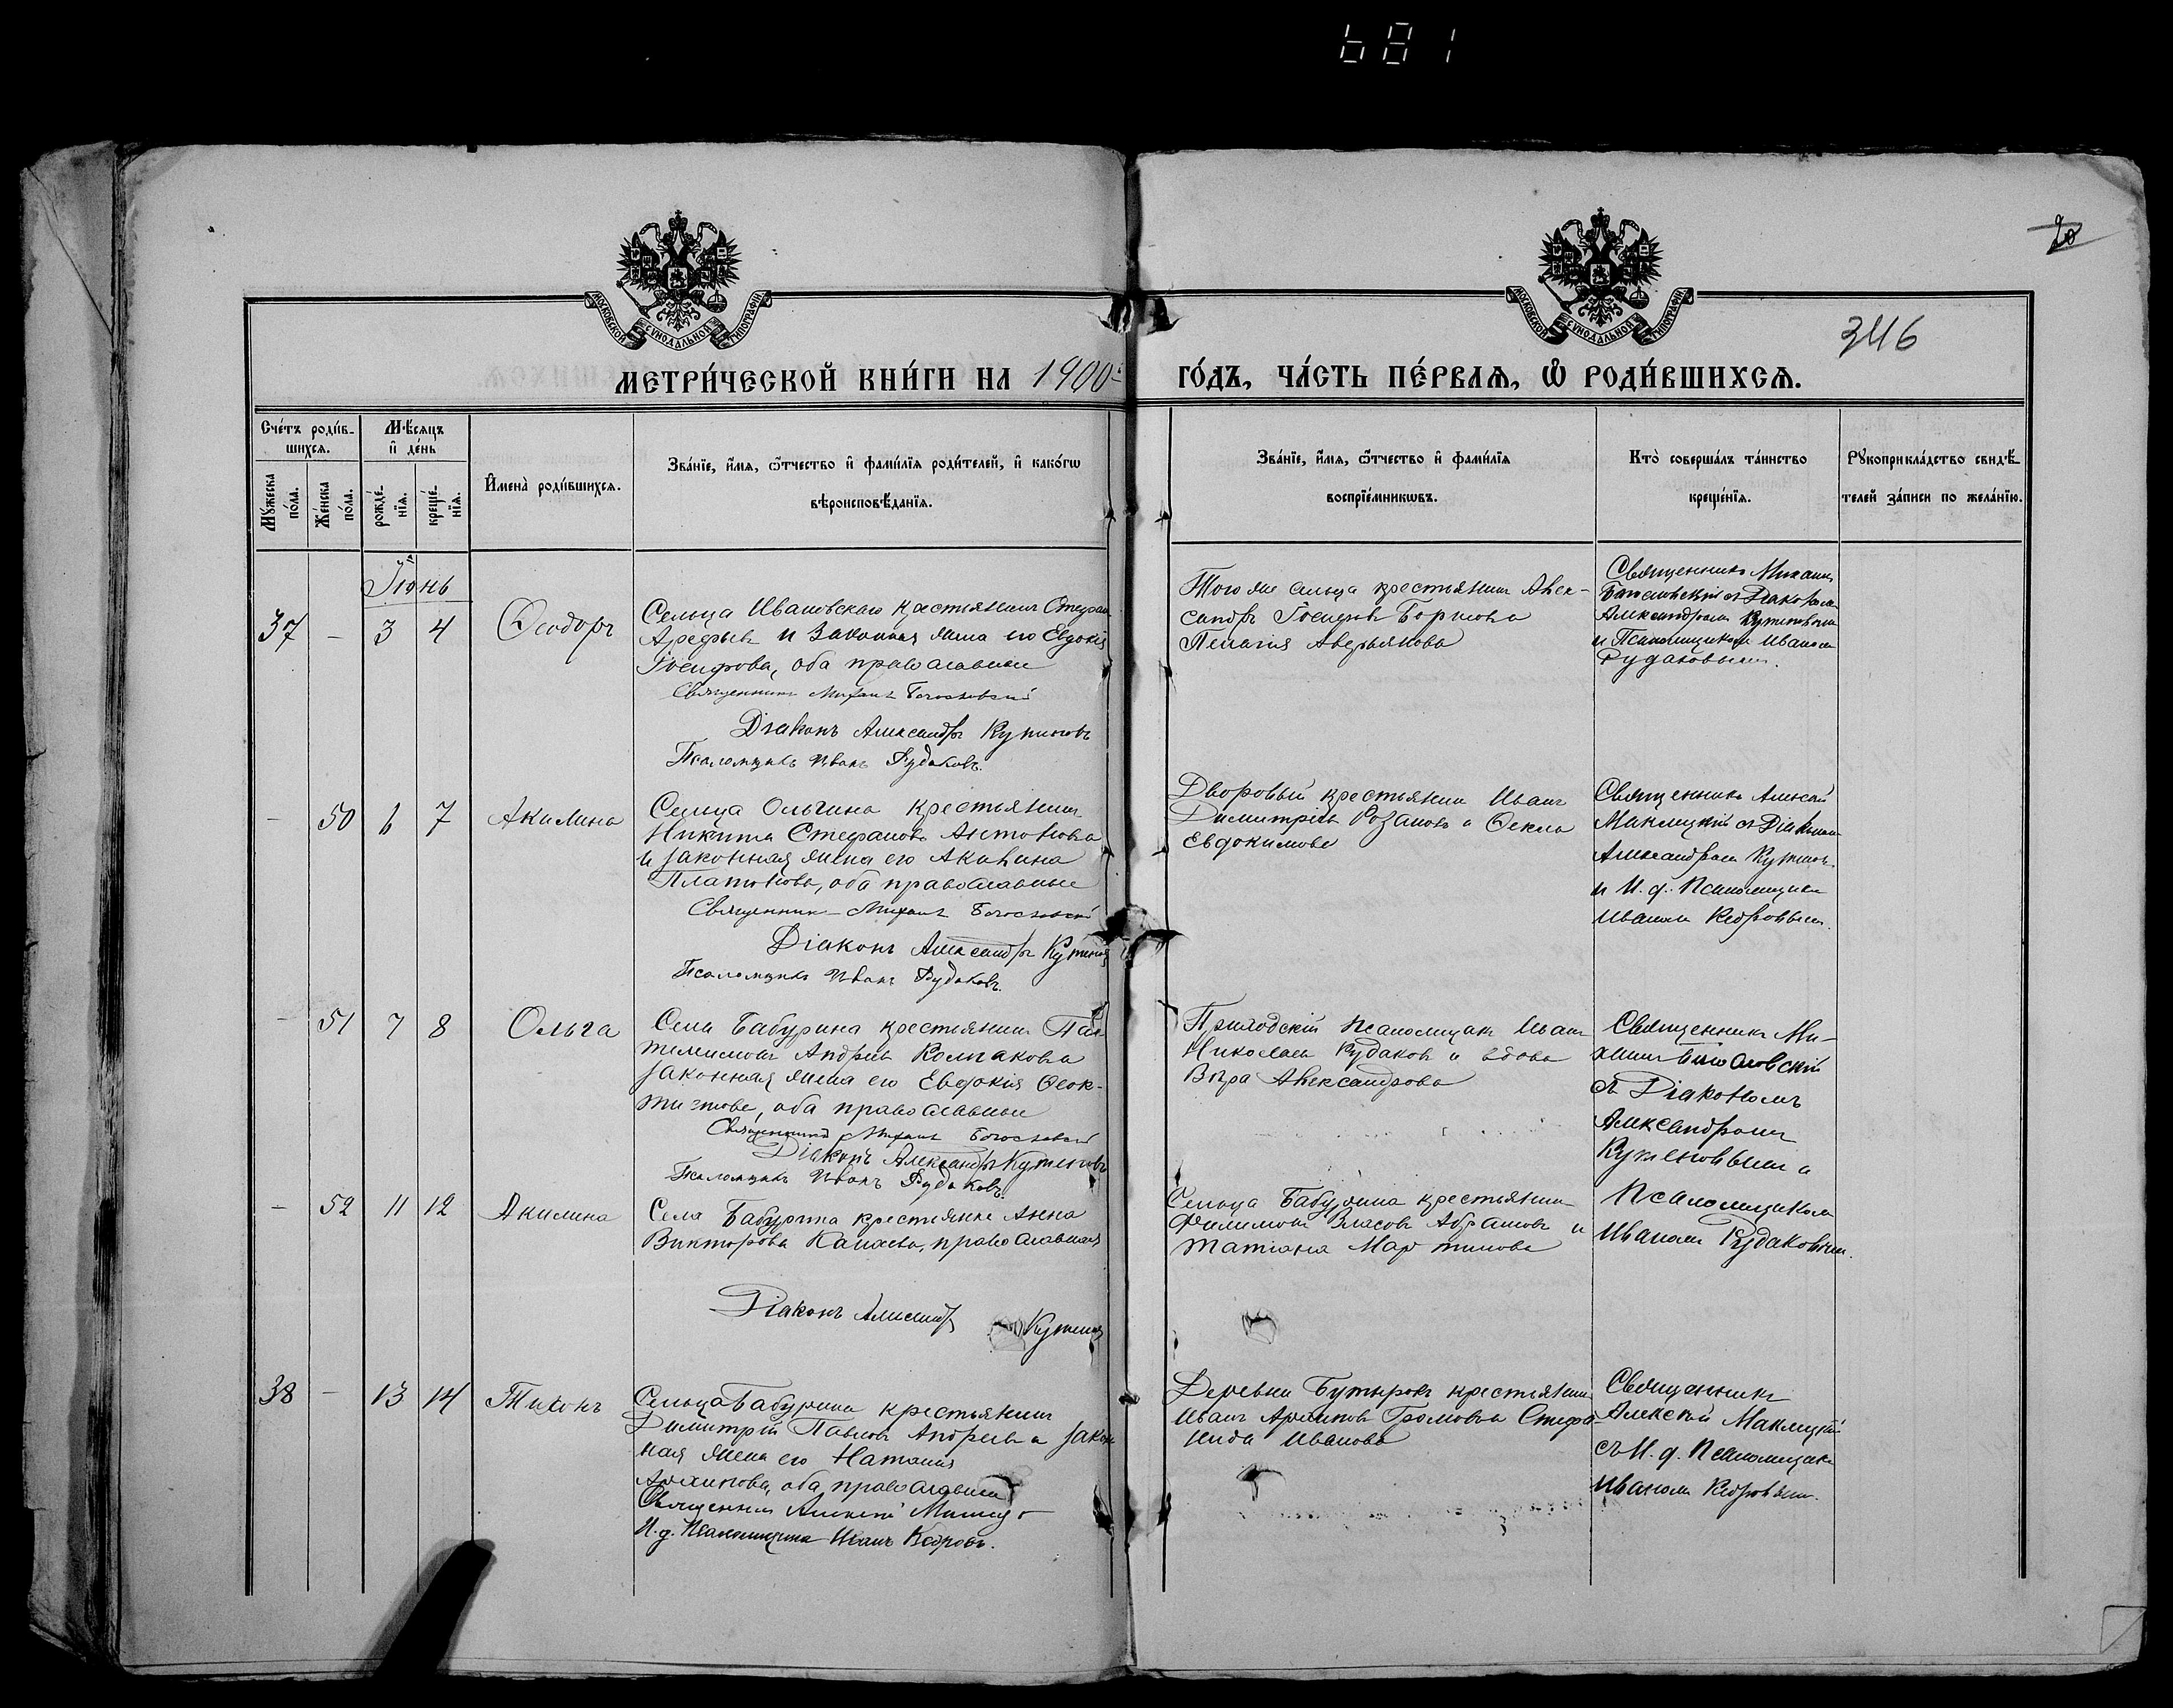 681
20
МОСКОВСКОЙ СѴНОДАЛЬНОЙ ТИПОГРАФІИ.
МОСКОВСКОЙ СѴНОДАЛЬНОЙ ТИПОГРАФІИ.
346
МЕТРИ́ЧЕСКОЙ КНИ́ГИ НА 1900й
ГО́ДЪ, ЧА́СТЬ ПЕ́РВАѦ, Ѽ РОДИ́ВШИХСѦ.
Сче́тъ роди́в-
шихсѧ.
Мꙋ́жеска по́ла.
Же́нска по́ла.
Мѣ́сѧцъ
и҆ де́нь
рожде́-нїѧ.
креще́-нїѧ.
И҆мена̀ роди́вшихсѧ.
Зва́нїе, и҆́мѧ, ѻ҆́тчество и҆ фами́лїѧ роди́телей, и҆ како́гѡ
вѣроисповѣ́данїѧ.
Зва́нїе, и҆́мѧ, ѻ҆́тчество и҆ фами́лїѧ
воспрїе́мникѡвъ.
Кто̀ соверша́лъ та́инство
креще́нїѧ.
Рꙋкоприкла́дство свидѣ́-
телей за́писи по жела́нїю.
Іюнь
37 - 3 4 Ѳеодоръ
Сельца Ивановскаго крестьянинъ Стефан
Арефьевъ и законная жена его Евдокія
Іосифова, оба православные
Священникъ Михаилъ Богословскій
Діаконъ Александръ Кутеповъ
Псаломщикъ Иванъ Рудаковъ.
Того же сельца крестьянинъ Алек-
сандръ Іосифовъ Борисовъ
Пелагія Аверьянова
Священникъ Михаилъ
Богословскій съ Діакономъ
Александромъ Кутеповымъ
и Псаломщикомъ Иваномъ
Рудаковымъ.
- 50 6 7 Акилина
Сельца Ольгина крестьянинъ
Никита Стефановъ Антоновъ
и законная жена его Акилина
Платонова, оба православные
Священникъ Михаилъ Богословскій
Діаконъ Александръ Кутеповъ
Псаломщикъ Иванъ Рудаковъ.
Дворовый крестьянинъ Иванъ
Димитріевъ Розановъ и Ѳекла
Евдокимова
Священникъ Алексій
съ Діакономъ
Александромъ Кутепов.
и И. д. Псаломщика
Иваномъ Кедровымъ.
- 51 7 8 Ольга
Села Бабурина крестьянинъ Пан-
телеимонъ Андреевъ Колпаковъ и
законная жена его Евдокія Ѳеок-
тистова, оба православные
Священникъ Михаилъ Богословскій
Діаконъ Александръ Кутеповъ
Псаломщикъ Иванъ Рудаковъ.
Приходскій псаломщикъ Иванъ
Николаевъ Рудаковъ и вдова
Вѣра Александрова
Священникъ Ми-
хаилъ Богословскій
съ Діакономъ
Александромъ
Кутеповымъ и
Псаломщикомъ
Иваномъ Рудаковымъ.
- 52 11 12 Акилина
Села Бабурина крестьянка Анна
Викторова Канаева, православная
Діаконъ Александръ Кутеповъ
Сельца Бабурина крестьянинъ
Филимонъ Власовъ Абрамовъ и
Татіана Мартинова
38 - 13 14 Тихонъ
Сельца Бабурина крестьянинъ
Димитрій Павловъ Андреевъ и закон
ная жена его Наталія
оба православные
Священникъ Алексій
И. д. Псаломщика Иванъ Кедровъ.
Деревни Бутырокъ крестьянинъ
Иванъ Архиповъ Громовъ и Стефа-
нида Иванова
Священникъ
Алексій
съ И. д. Псаломщика
Иваномъ Кедровымъ.